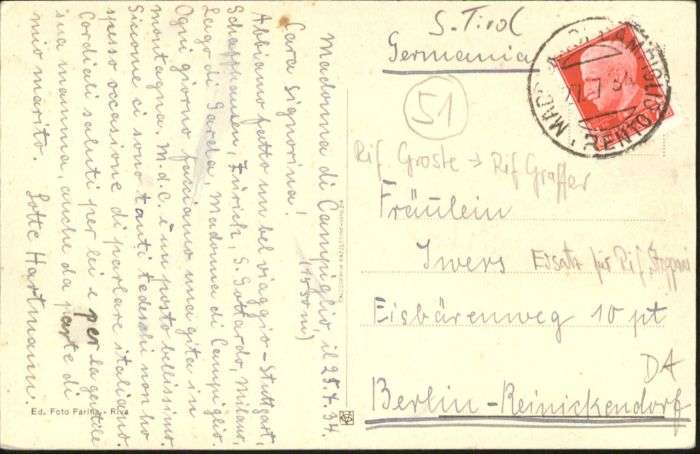 Madonna di Campiglio, il 25.7.34.
(1550 m)
Cara Signorina!
Abbiamo fatto un bel viaggio - Stuttgart,
Schaffhausen, Zürich, S. Gottardo, Milano,
Lago di Garda, Madonna di Campiglio.
Ogni giorno facciamo una gita in
montagna. M.d.C. è un posto bellissimo.
Siccome ci sono tanti tedeschi non ho
spesso occasione di parlare italiano.
Cordiali saluti per lei e per la gentile
sua mamma, anche da parte di
mio marito. Lotte Hartmann.
Ed. Foto Parini - Riva
S. Tirol
Germania
51
Rif. Groste → Rif Graffer
Fräulein
Iwers
Ersatz für Rif. Stoppani
Eisbärenweg 10 pt
DA
Berlin-Reinickendorf